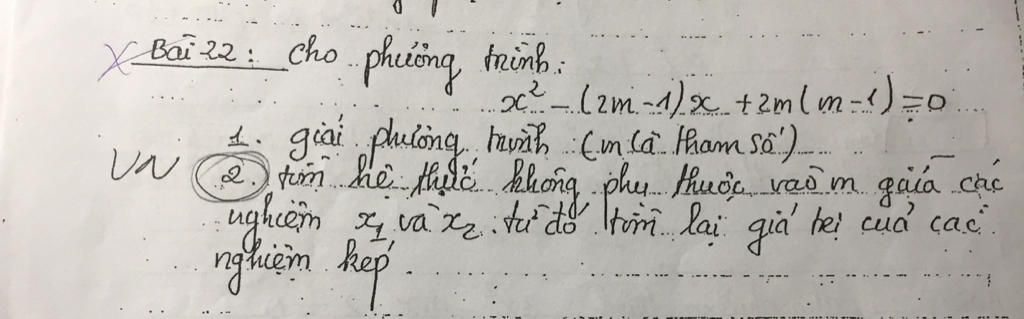 Bài 22: Cho phương trình:
x² - (2m - 1)x + 2m(m - 1) = 0
1. giải phương trình (m là tham số)
VN 2. tìm hệ thức không phụ thuộc vào m giữa các
nghiệm x₁ và x₂. từ đó tìm lại giá trị của các
nghiệm kép.